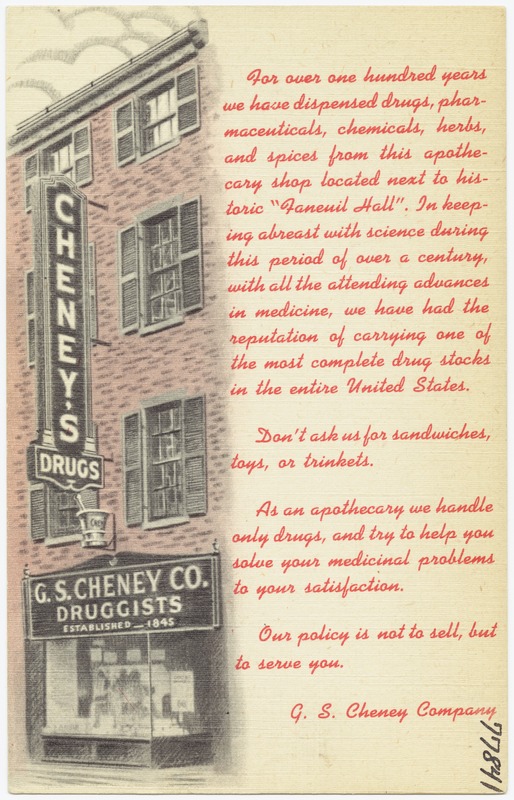 CHENEY'S
DRUGS
G. S. CHENEY CO.
DRUGGISTS
ESTABLISHED — 1845
For over one hundred years
we have dispensed drugs, phar-
maceuticals, chemicals, herbs,
and spices from this apothe-
cary shop located next to his-
toric "Faneuil Hall". In keep-
ing abreast with science during
this period of over a century,
with all the attending advances
in medicine, we have had the
reputation of carrying one of
the most complete drug stocks
in the entire United States.
Don't ask us for sandwiches,
toys, or trinkets.
As an apothecary we handle
only drugs, and try to help you
solve your medicinal problems
to your satisfaction.
Our policy is not to sell, but
to serve you.
G. S. Cheney Company